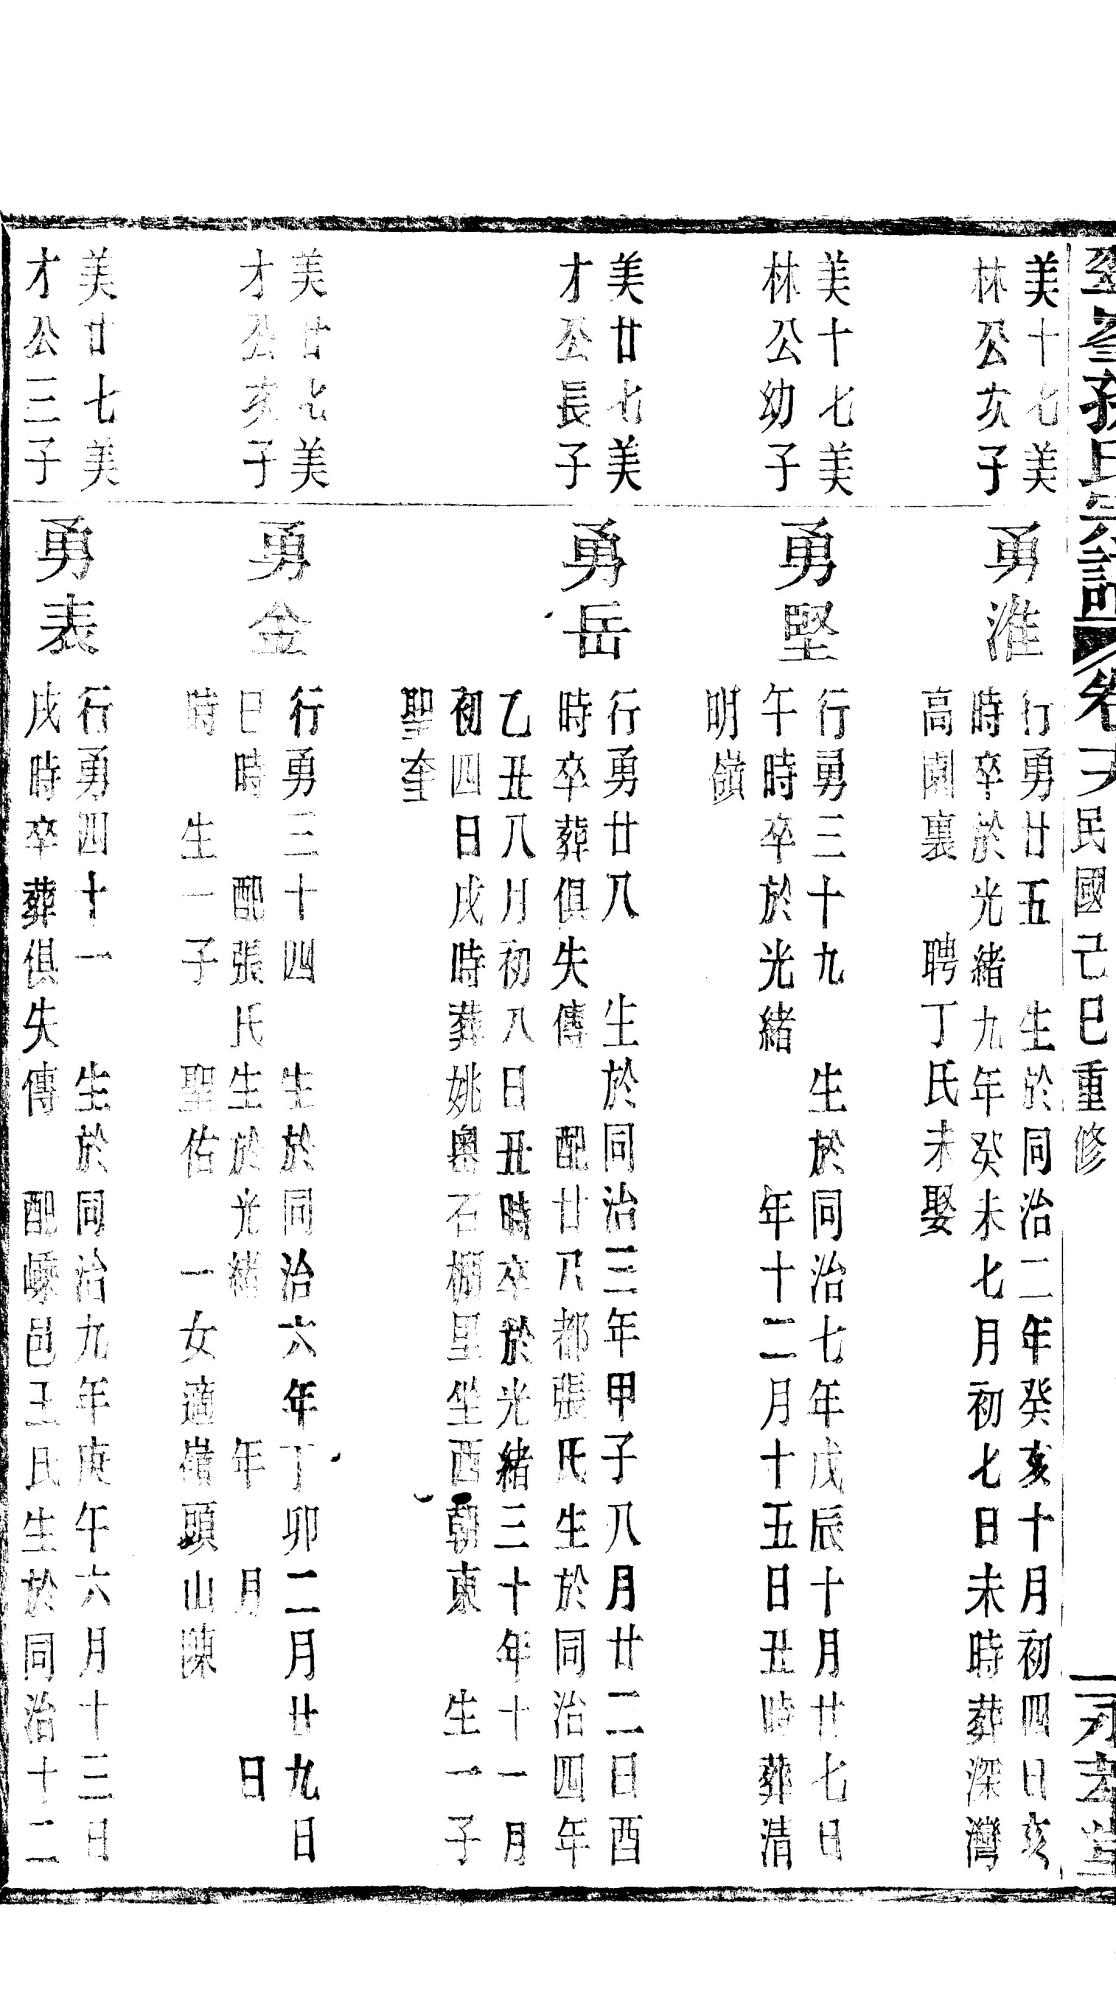 孫氏宗譜 卷 民國己巳重修
美十七美
林公亥子
勇淮
行勇廿五 生於同治二年癸亥十月初四日亥
時卒於光緒九年癸未七月初七日未時葬深灣
高園裏 聘丁氏未娶
美十七美
林公幼子
勇堅
行勇三十九 生於同治七年戊辰十月廿七日
午時卒於光緒 年十二月十五日丑時葬清
明嶺
美廿七美
才公長子
勇岳
行勇廿八 生於同治三年甲子八月廿二日酉
時卒葬俱失傳 配廿八都張氏生於同治四年
乙丑八月初八日丑時卒於光緒三十年十一月
初四日戌時葬姚奧石棚里坐酉朝東 生一子
聖奎
美廿七美
才公亥子
勇金
行勇三十四 生於同治六年丁卯二月廿九日
巳時 配張氏生於光緒 年 月 日
時 生一子 聖佑 一女適嶺頭山陳
美廿七美
才公三子
勇表
行勇四十一 生於同治九年庚午六月十三日
戌時卒葬俱失傳 配嵊邑王氏生於同治十二